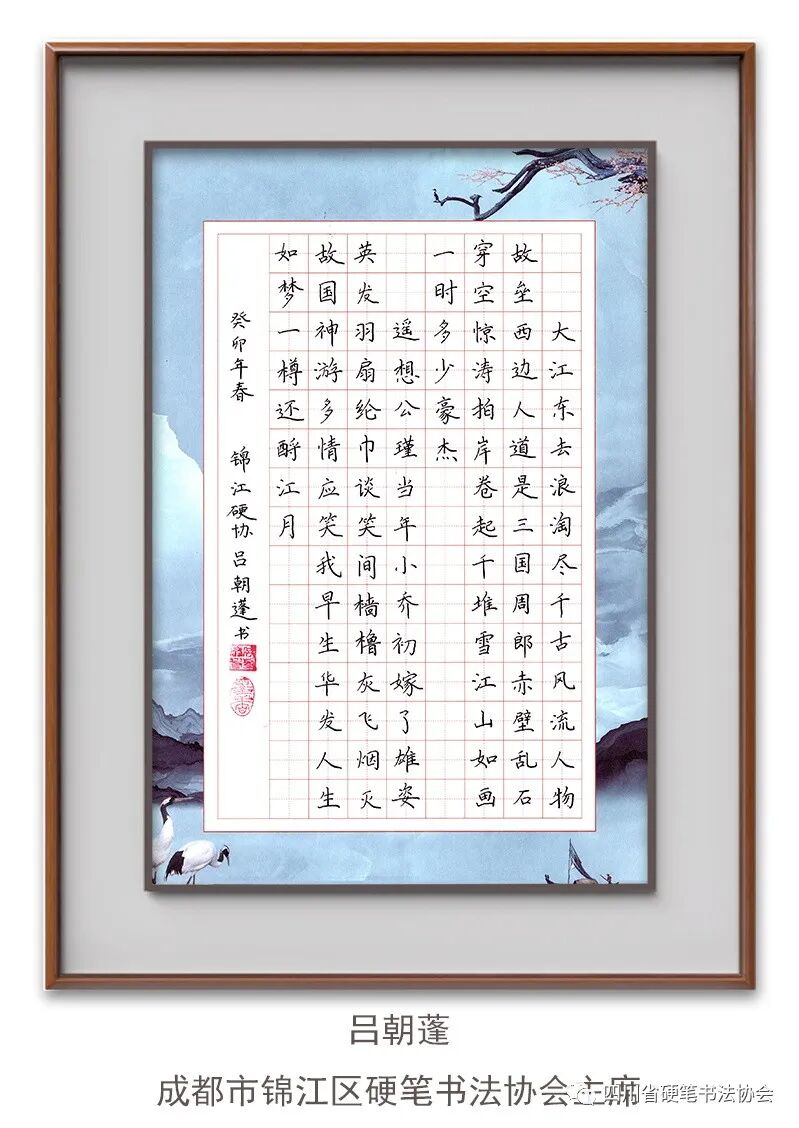 大江东去浪淘尽千古风流人物
故垒西边人道是三国周郎赤壁乱石
穿空惊涛拍岸卷起千堆雪江山如画
一时多少豪杰
遥想公瑾当年小乔初嫁了雄姿
英发羽扇纶巾谈笑间樯橹灰飞烟灭
故国神游多情应笑我早生华发人生
如梦一樽还酹江月
癸卯年春 锦江硬协吕朝蓬书
吕朝蓬
成都市锦江区硬笔书法协会主席
四川省硬笔书法协会